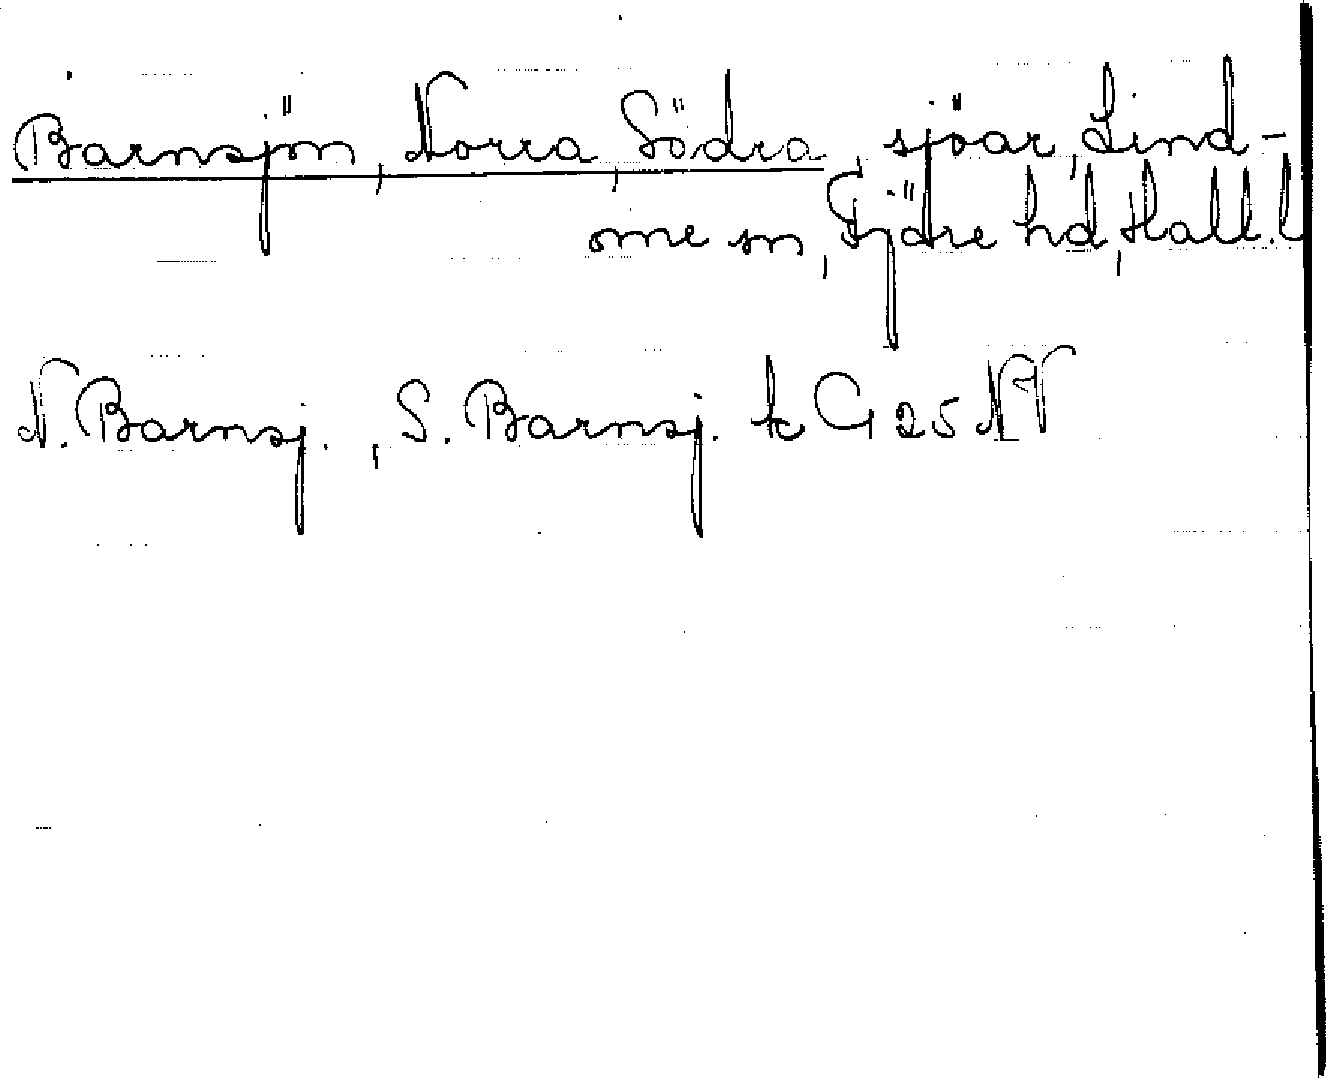 Barnsjön, Norra, Södra, sjöar, Lind-
ome sn, Fjäre hd, Hall. l
N. Barnsj., S. Barnsj. tc G 25 NV